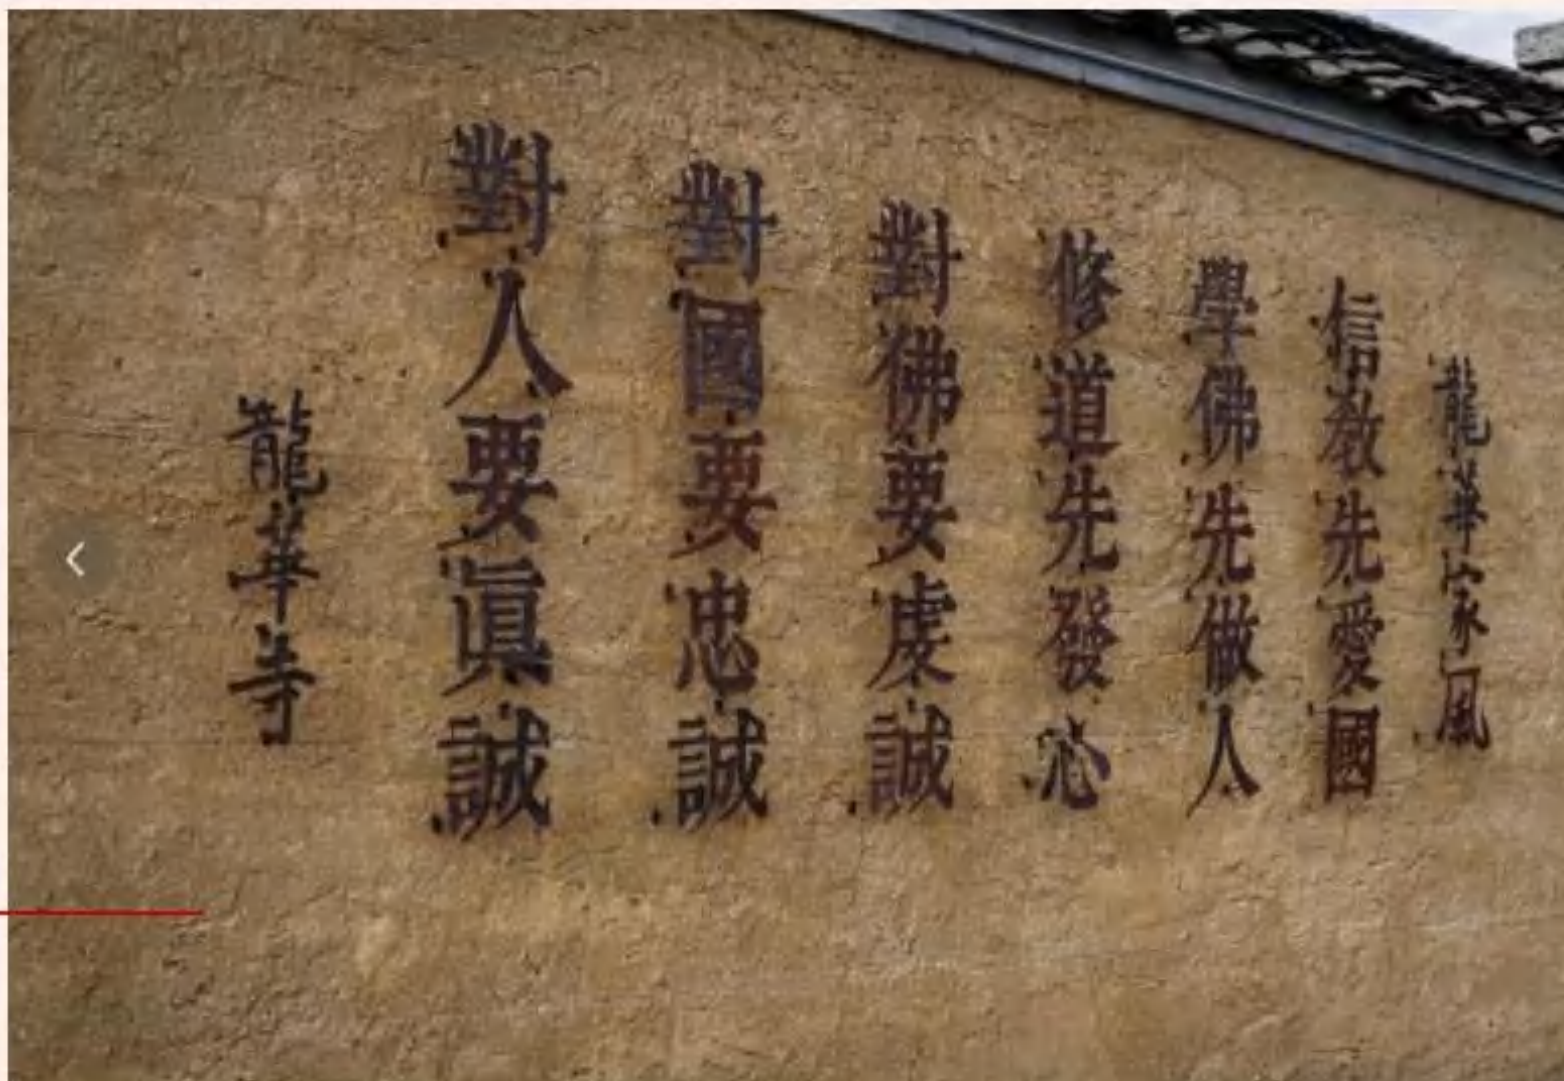 龍華家風
信教先愛國
學佛先做人
修道先發心
對佛要虔誠
對國要忠誠
對人要眞誠
龍華寺